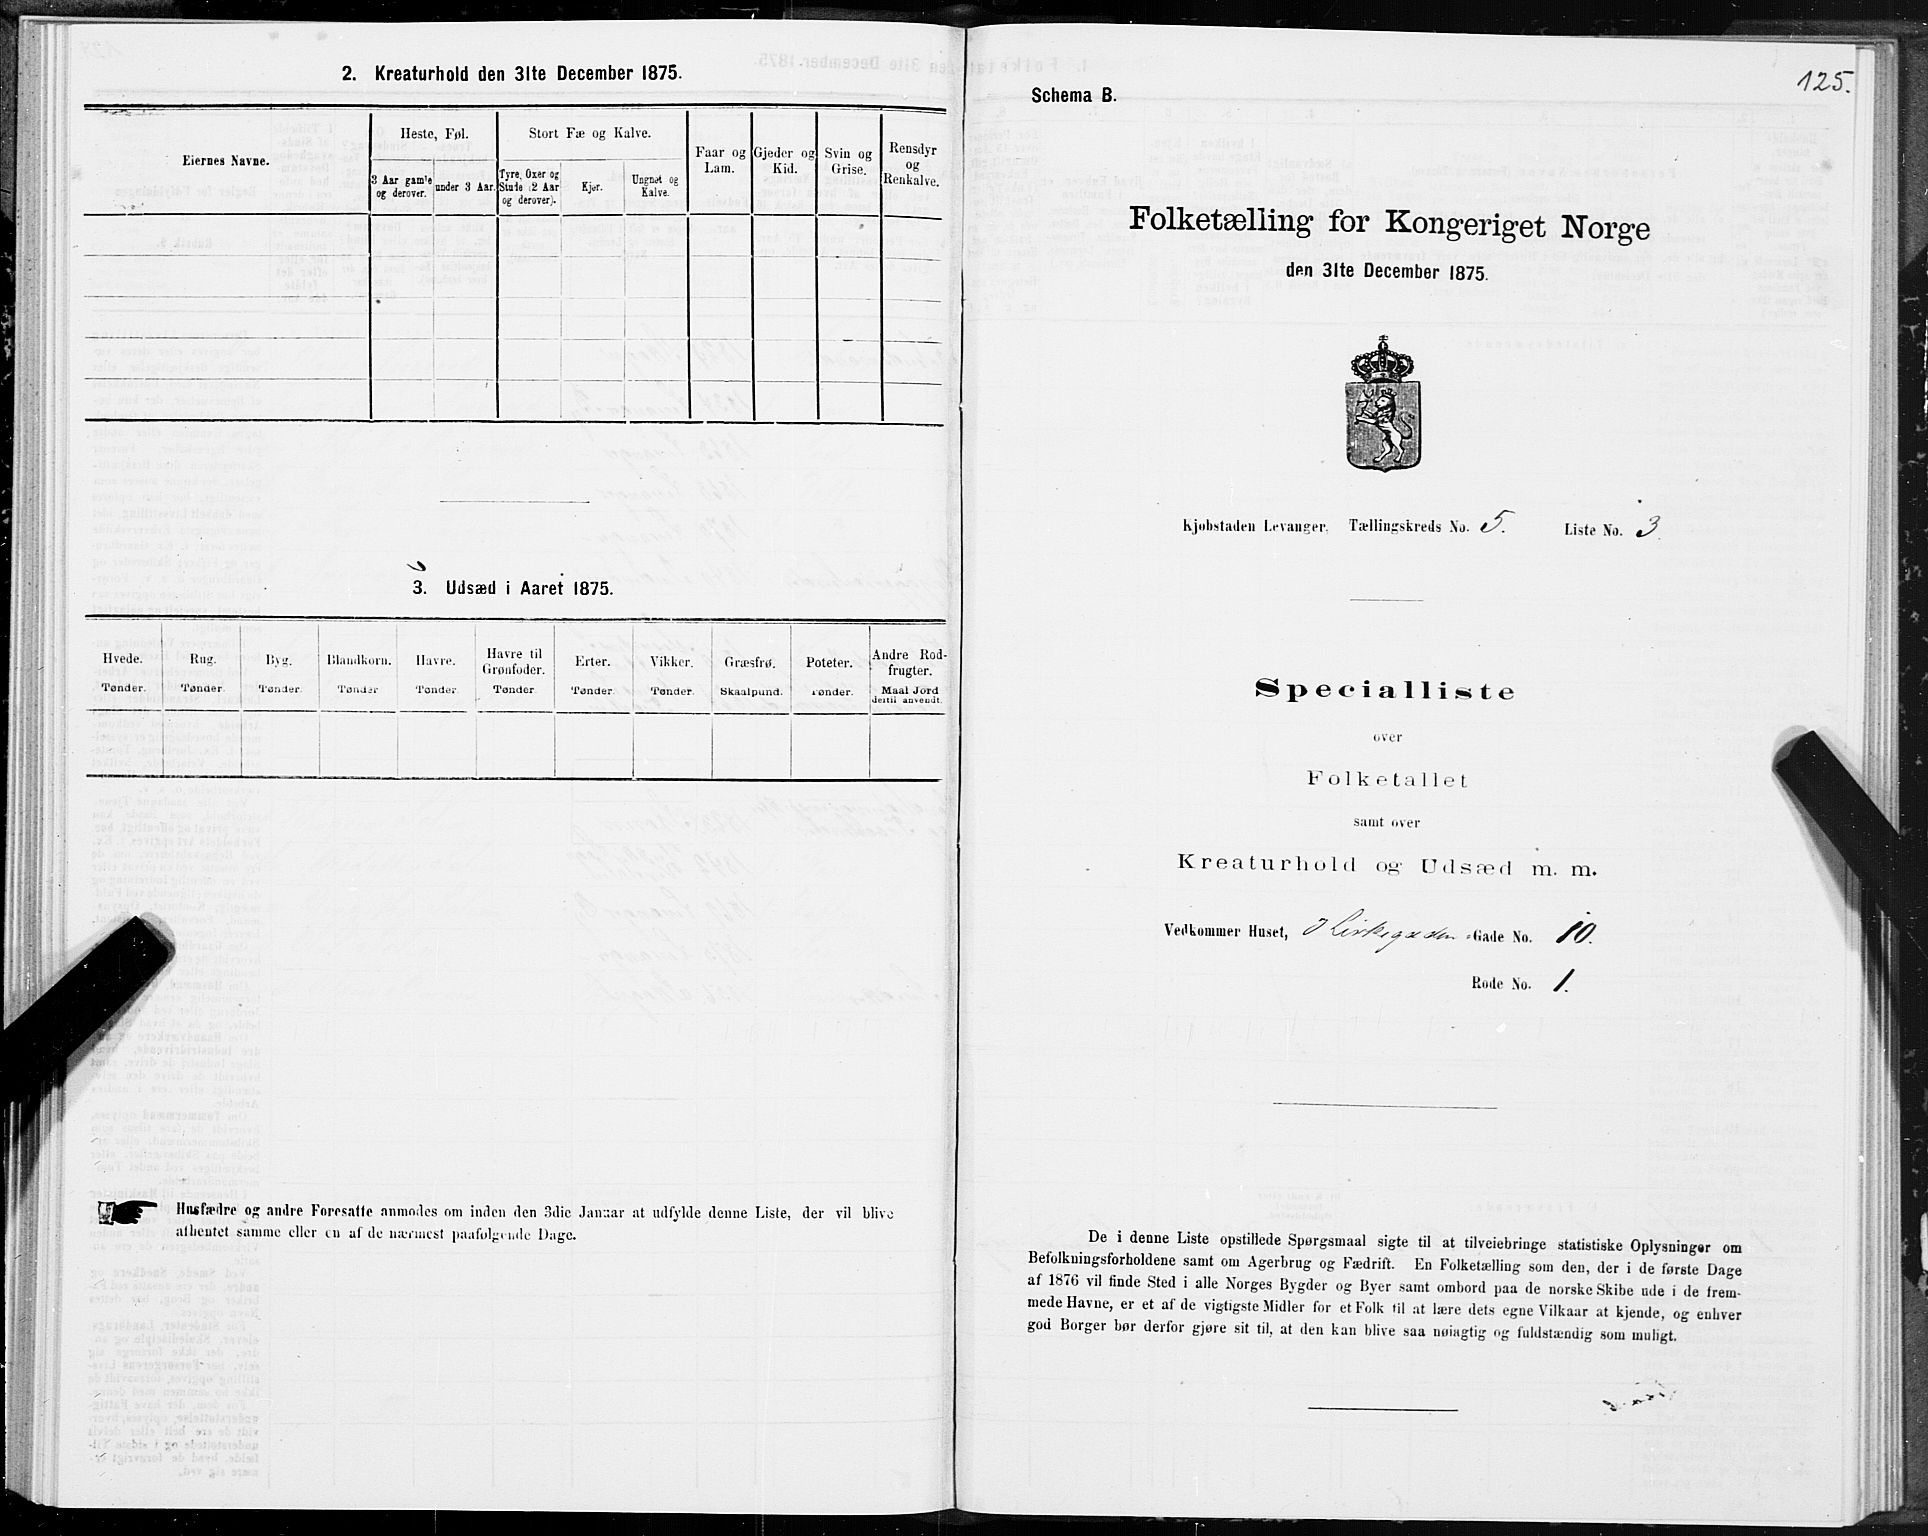 2. Kreaturhold den 31te December 1875.
Eiernes Navne.
Heste, Føl.
Stort Fæ og Kalve.
Faar og
Lam.
Gjeder og
Kid.
Svin og
Grise.
Rensdyr
og
Renkalve.
3 Aar gamle
og derover.
under 3 Aar.
Tyre, Oxer og
Stude (2 Aar
og derover).
Kjør.
Ungnøt og
Kalve.
3. Udsæd i Aaret 1875.
Hvede.
Rug.
Byg.
Blandkorn.
Havre.
Havre til
Grønfoder.
Erter.
Vikker.
Græsfrø.
Poteter.
Andre Rod-
frugter.
Tønder.
Tønder.
Tønder.
Tønder
Tønder.
Tønder
Tønder.
Tønder.
Skaalpund.
Tønder.
Maal Jord
dertil anvendt.
Husfædre og andre Foresatte anmodes om inden den 3die Januar at udfylde denne Liste, der vil blive
afhentet samme eller en af de nærmest paafølgende Dage.
125.
Schema B.
Folketælling for Kongeriget Norge
den 31te December 1875.
Kjøbstaden Levanger. Tællingskreds No. 5. Liste No. 3.
Specialliste
over
Folketallet
samt over
Kreaturhold og Udsæd m. m.
Vedkommer Huset, Kirkegaden Gade No. 10.
Rode No. 1.
De i denne Liste opstillede Spørgsmaal sigte til at tilveiebringe statistiske Oplysninger om
Befolkningsforholdene samt om Agerbrug og Fædrift. En Folketælling som den, der i de første Dage
af 1876 vil finde Sted i alle Norges Bygder og Byer samt ombord paa de norske Skibe ude i de frem-
mede Havne, er et af de vigtigste Midler for et Folk til at lære dets egne Vilkaar at kjende, og enhver
god Borger bør derfor gjøre sit til, at den kan blive saa nøiagtig og fuldstændig som muligt.